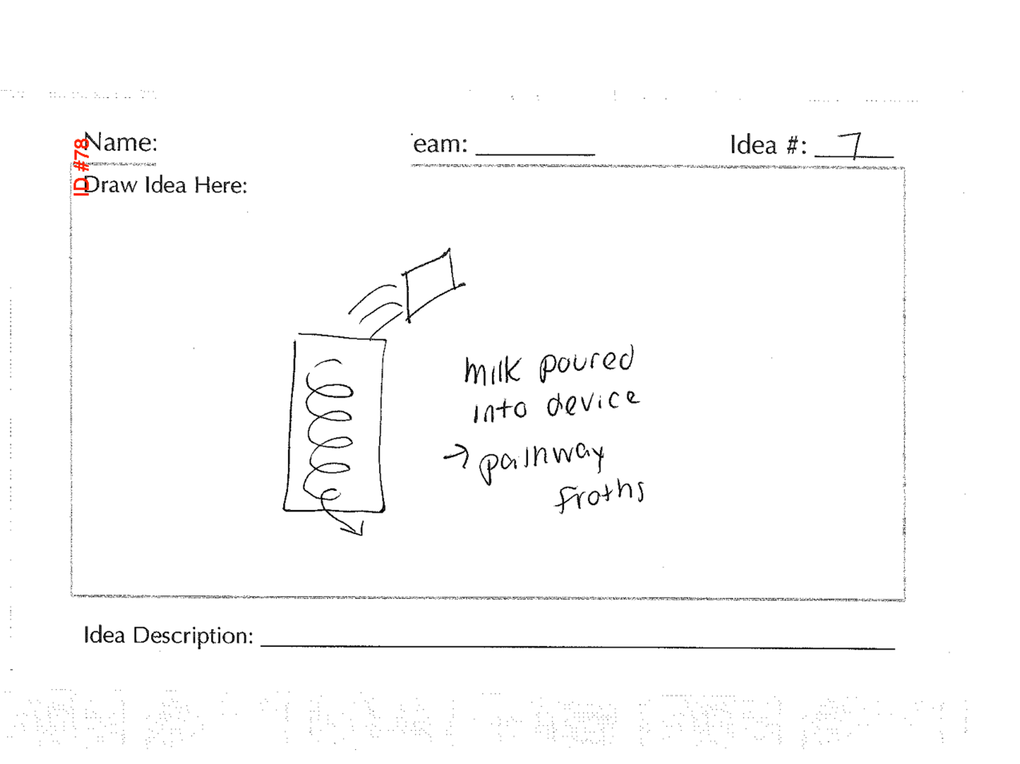 ID #78
Name:
eam:
Idea #: 7
Draw Idea Here:
milk poured
into device
→ pathway
froths
Idea Description: